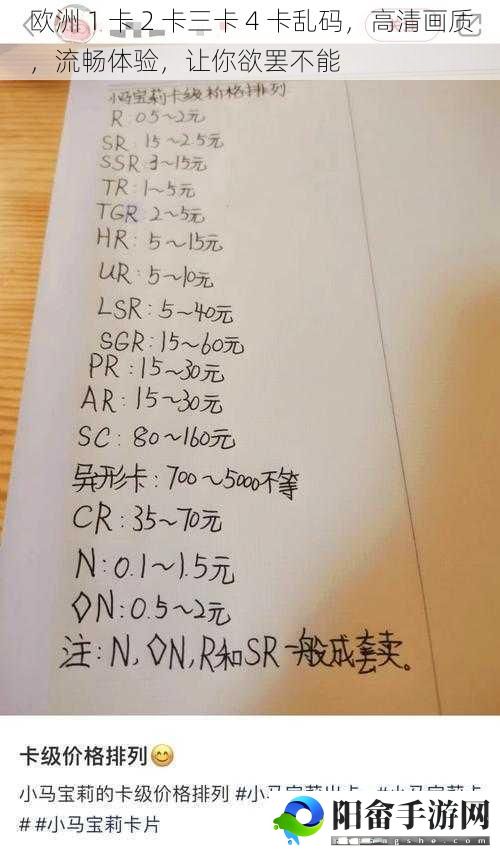 欧洲1卡2卡三卡4卡乱码，高清画质
，流畅体验，让你欲罢不能
小马宝莉卡级价格排列
R:0.5～2元
SR:15～2.5元
SSR:3～15元
TR:1～5元
TGR:2～5元
HR:5～15元
UR:5～10元
LSR:5～40元
SGR:15～60元
PR:15～30元
AR:15～30元
SC:80～160元
异形卡:700～5000不等
CR:35～70元
N:0.1～1.5元
◇N:0.5～2元
注:N,◇N,R和SR一般成套卖。
卡级价格排列😊
小马宝莉的卡级价格排列 #小马宝莉出卡 #小马宝莉卡
# #小马宝莉卡片
阳畲手游网